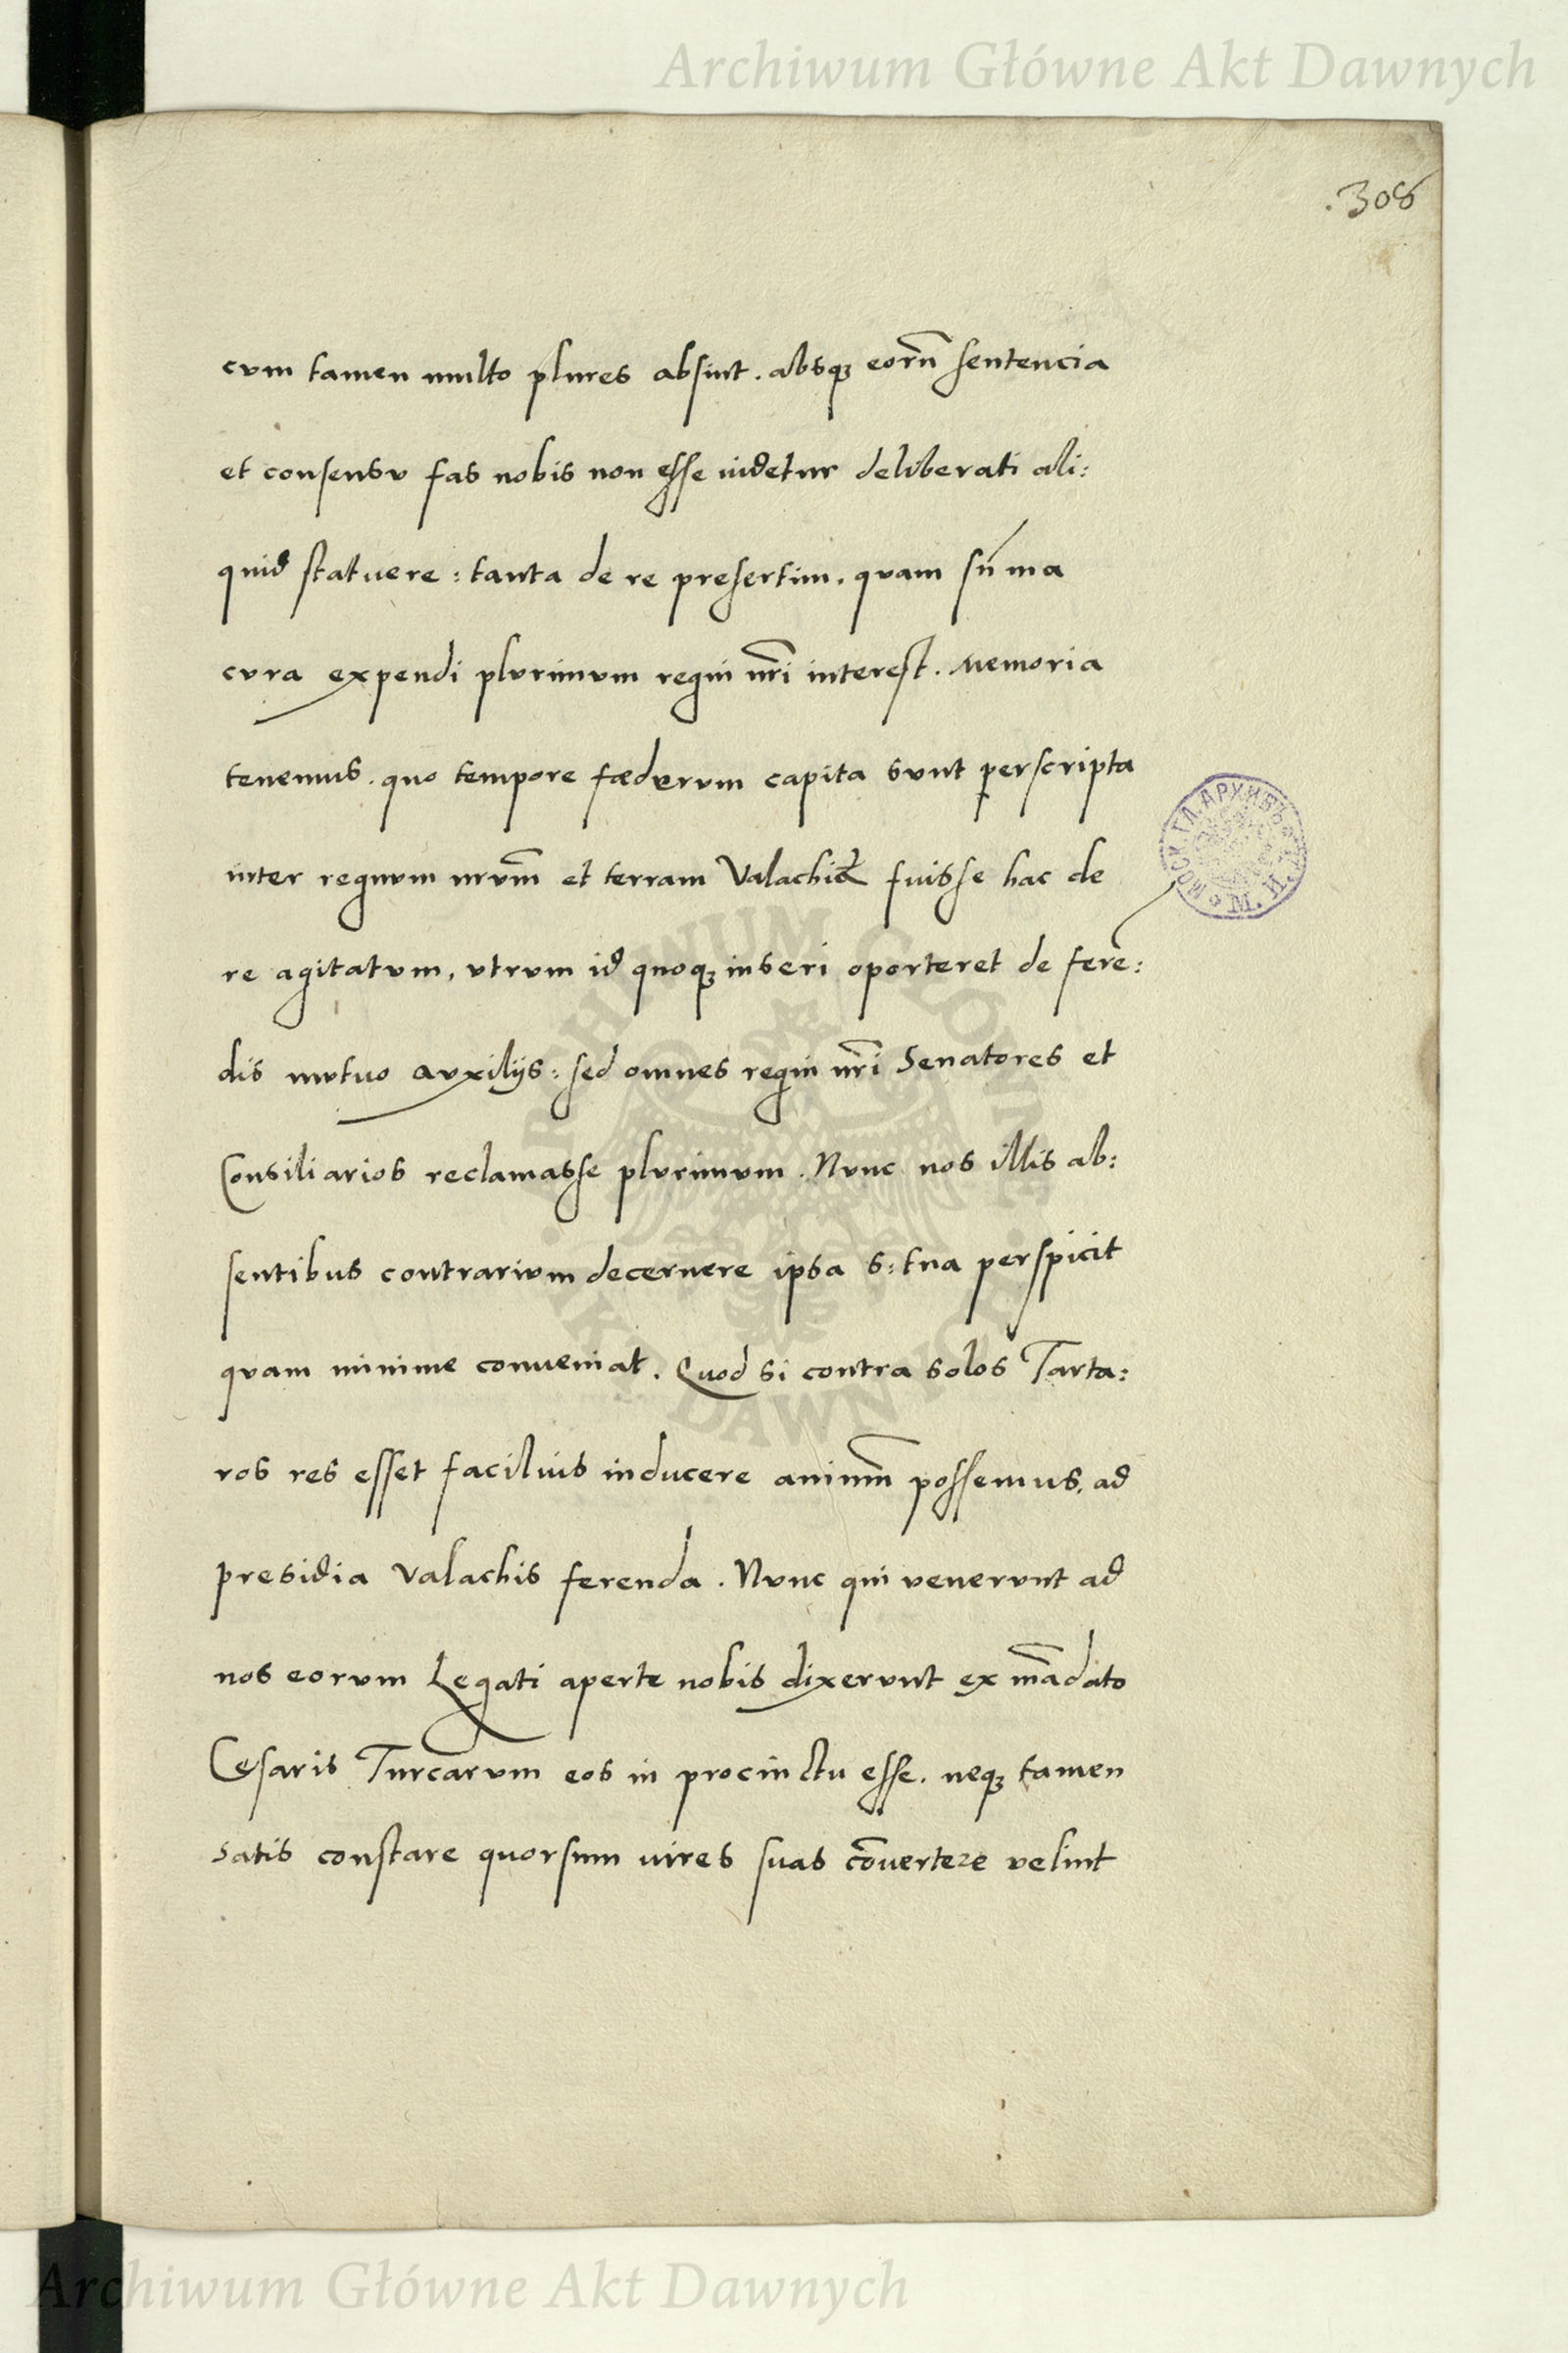 Archiwum Główne Akt Dawnych
.308
cum tamen multo plures absint. absqꝫ eorū sentencia
et consensu fas nobis non esse uidetur deliberati ali:
quid statuere: tanta de re presertim. quam sūma
cura expendi plurimum regni nr̄i interest. Memoria
tenemus. quo tempore fœderum capita sunt perscripta
inter regnum nrūm et terram Valachię fuisse hac de
re agitatum, utrum id quoqꝫ inseri oporteret de ferē:
dis mutuo auxilijs: sed omnes regni nr̄i Senatores et
Consiliarios reclamasse plurimum. Nunc nos illis ab:
sentibus contrarium decernere ipsa s: tua perspicit
quam minime conueniat. Quod si contra solos Tarta:
ros res esset facilius inducere animū possemus, ad
presidia Valachis ferenda. Nunc qui uenerunt ad
nos eorum Legati aperte nobis dixerunt ex mādato
Cesaris Turcarum eos in procinctu esse. neqꝫ tamen
satis constare quorsum uires suas cōuertere uelint
МОСК. ГЛ. АРХИВЪ М. И. Д.
ARCHIWUM GŁÓWNE AKT DAWNYCH
Archiwum Główne Akt Dawnych